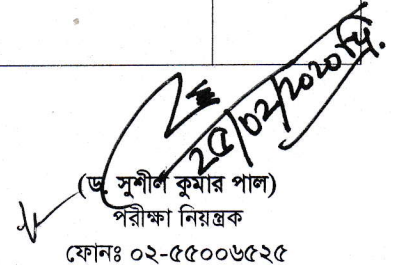 ২৫/০২/২০২০খ্রি.
(ড. সুশীল কুমার পাল)
পরীক্ষা নিয়ন্ত্রক
ফোনঃ ০২-৫৫০০৬৫২৫